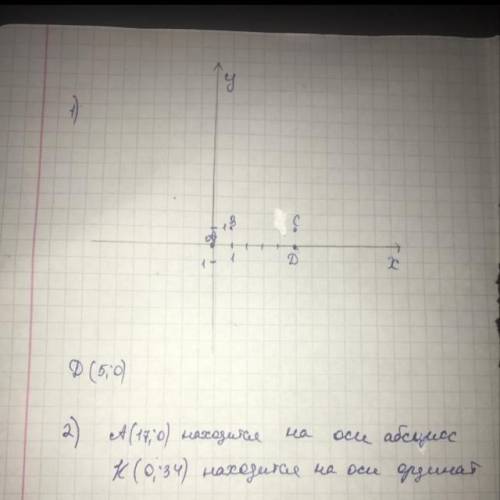 y
1)
1 B C
A
1 1 D x
D(5;0)
2) A(17;0) находится на оси абсцисс
K(0;-34) находится на оси ординат